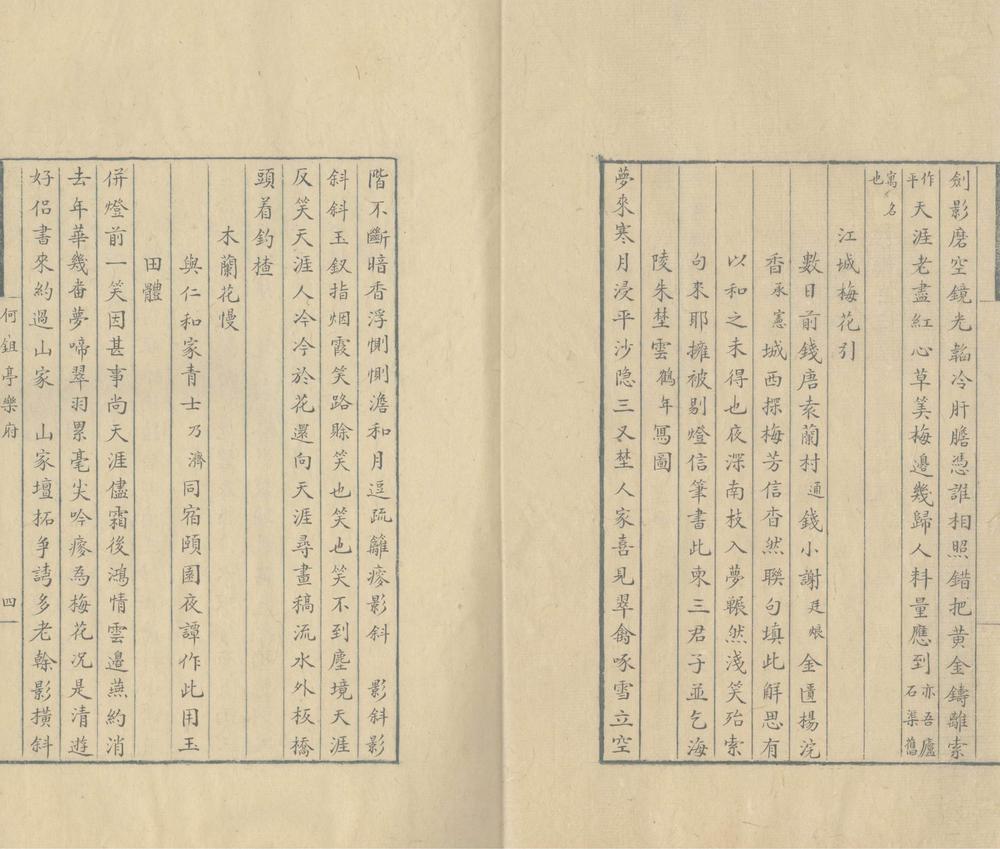 劍影磨空鏡光韜冷肝膽憑誰相照錯把黃金鑄離索
作平天涯老盡紅心草美梅邊幾歸人料量應到亦吾廬石渠舊
寓名也
江城梅花引
數日前錢唐袁蘭村通錢小謝廷烺金匱楊浣
香承憲城西探梅芳信杳然聯句填此解思有
以和之未得也夜深南枝入夢冁然淺笑殆索
句來耶擁被剔燈信筆書此柬三君子並乞海
陵朱埜雲鶴年寫圖
夢來寒月浸平沙隐三叉埜人家喜見翠禽啄雪立空
階不斷暗香浮惻惻澹和月逗疏籬瘮影斜 影斜影
斜斜玉釵指烟霞笑路賒笑也笑也笑不到塵境天涯
反笑天涯人冷冷於花還向天涯尋畫稿流水外板橋
頭着釣楂
木蘭花慢
與仁和家青士乃濟同宿頤園夜譚作此用玉
田體
併燈前一笑因甚事尚天涯儘霜後鴻情雲邊燕約消
去年華幾畨夢啼翠羽累毫尖吟瘮為梅花况是清遊
好侶書來約過山家 山家壇拓爭誇多老榦影撗斜
何𨨏亭樂府
四